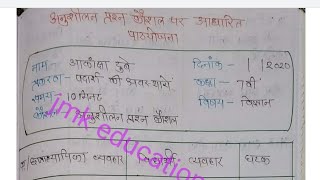 अनुशीलन प्रश्न कौशल पर आधारित
पाठयोजना
नाम - आकांक्षा दुबे दिनांक - / /2020
प्रकरण - पदार्थ की अवस्थाएं कक्षा - 7वीं
समय - 10 मिनट विषय - विज्ञान
कौशल - अनुशीलन प्रश्न कौशल
छात्राध्यापिका व्यवहार विद्यार्थी व्यवहार घटक
jmk education